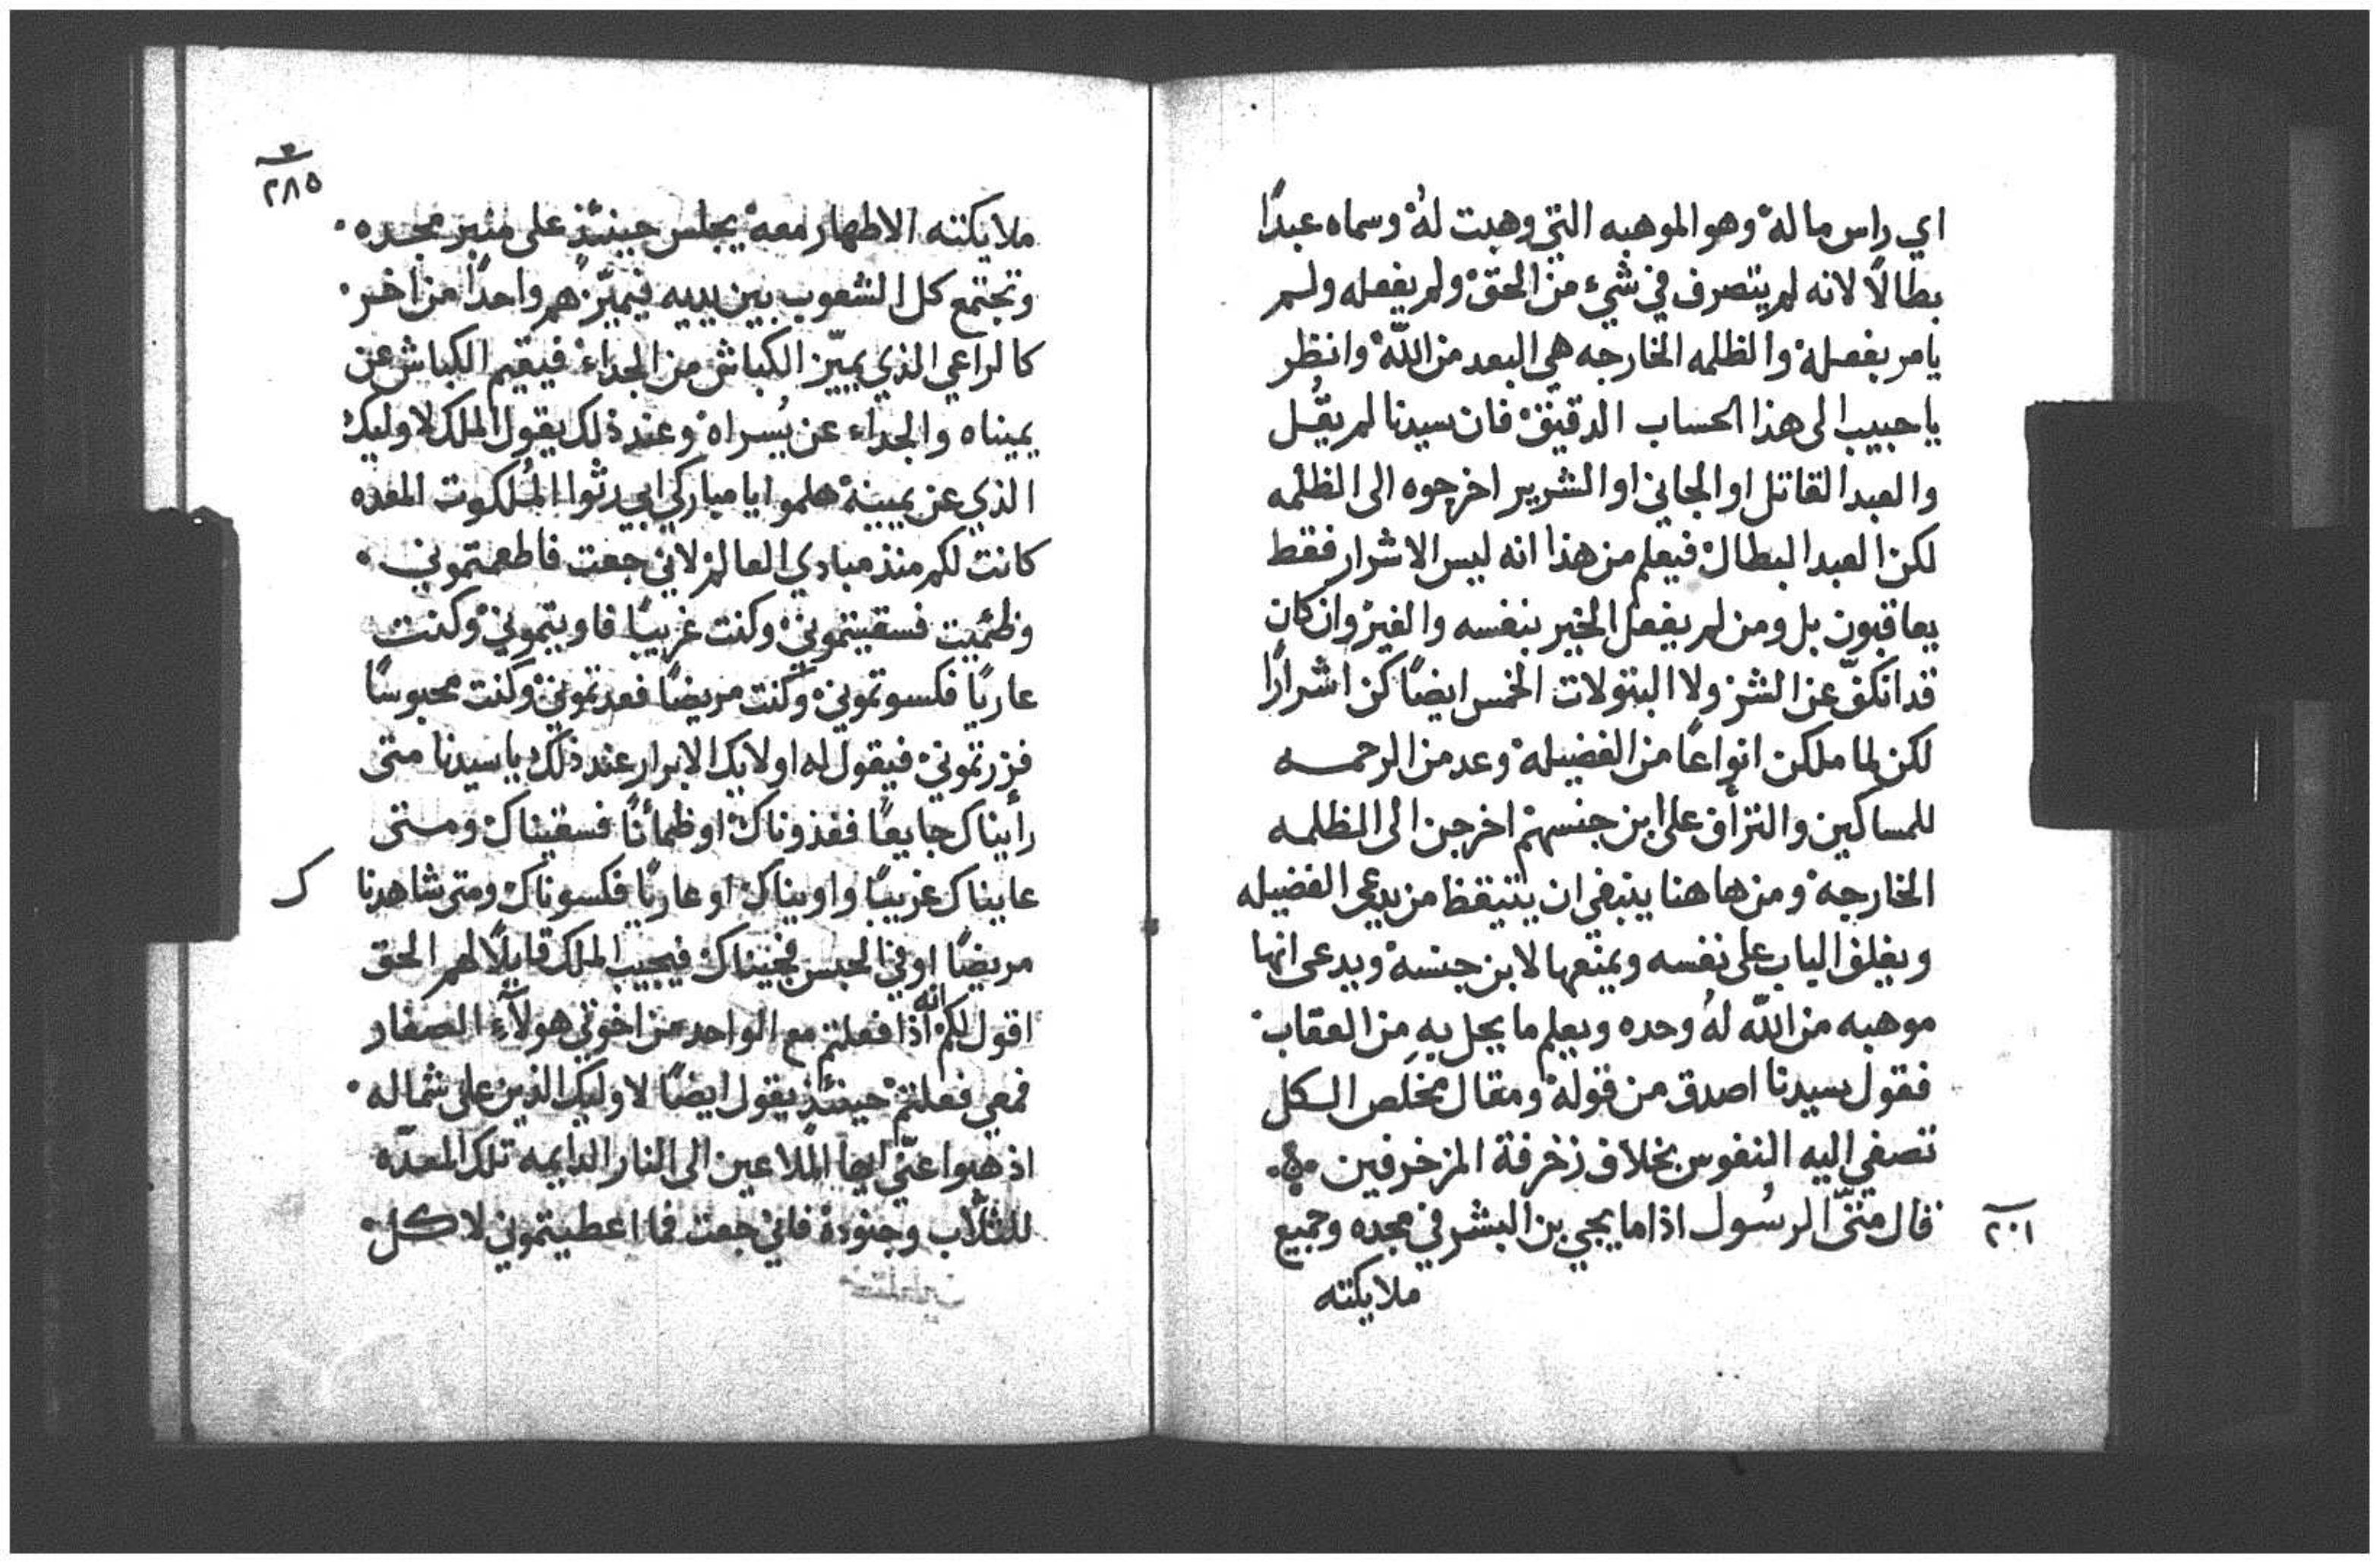 اي راس ماله وهو الموهبه التي وهبت لهُ وسماه عبدًا
بطالًا لانه لم يتصرف في شيء من الحق ولم يفعله ولم
يامر بفعله والظلمه الخارجه هي البعد من اللّه وانظر
يا حبيب الى هذا الحساب الدقيق فان سيدنا لم يقُل
والعبد القاتل او الجاني او الشرير اخرجوه الى الظلمه
لكن العبد البطال فيعلم من هذا انه ليس الاشرار فقط
يعاقبون بل ومن لم يفعل الخير بنفسه والغير وان كان
قد انكفّ عن الشر ولا البتولات الخمس ايضًا كن اشرارًا
لكن لما ملكن انواعًا من الفضيله وعدمن الرحمه
للمساكين والتراف على ابن جنسهم اخرجن الى الظلمه
الخارجه ومن هاهنا ينبغي ان يتيقظ من يدعي الفضيله
ويغلق الباب على نفسه ويمنعها لابن جنسه ويدعى انها
موهبه من اللّه لهُ وحده ويعلم ما يحل بهِ من العقاب
فقول سيدنا اصدق من قوله ومقال مخلص الكل
تصغي اليه النفوس بخلاف زخرفة المزخرفين
قال متىّ الرسُول اذا ما يجي بن البشر في مجده وجميع
٢٠١
ملايكته
٢٨٥
ملايكته الاطهار معه يجلس حينئذٍ على منبر مجده
وتجتمع كل الشعوب بين يديه فيميّزهُم واحدًا من اخر
كالراعي الذي يميّز الكباش من الجداء فيقيم الكباش عن
يميناه والجداء عن يُسراه وعند ذلك يقول الملك لاوليك
الذي عن يمينه هلموا يا مباركي ابي رثوا المُلكوت المعده
كانت لكم منذ مبادي العالم لاني جعت فاطعمتموني
وظئميت فسقيتموني وكنت غريبًا فاويتموني وكنت
عاريًا فكسوتموني وكنت مريضًا فعدتموني وكنت محبوسًا
فزرتموني فيقول له اولايك الابرار عند ذلك يا سيدنا متى
رأيناك جايعًا فغذوناك او ظمأنًا فسقيناك ومتى
عايناك غريبًا واويناك او عاريًا فكسوناك ومتى شاهدنا
ك
مريضًا او في الحبس فجيناك فيجيب الملك قايلًا لهم الحق
اقول لكم انه اذا فعلتم مع الواحد من اخوتي هولآء الصغار
فمعي فعلتم حينئذٍ يقول ايضًا لاوليك الذين على شماله
اذهبوا عنّي ايها الملاعين الى النار الدايمه تلك المعدّه
للثلّاب وجنوده فاني جعت فما اعطيتموني لاكل